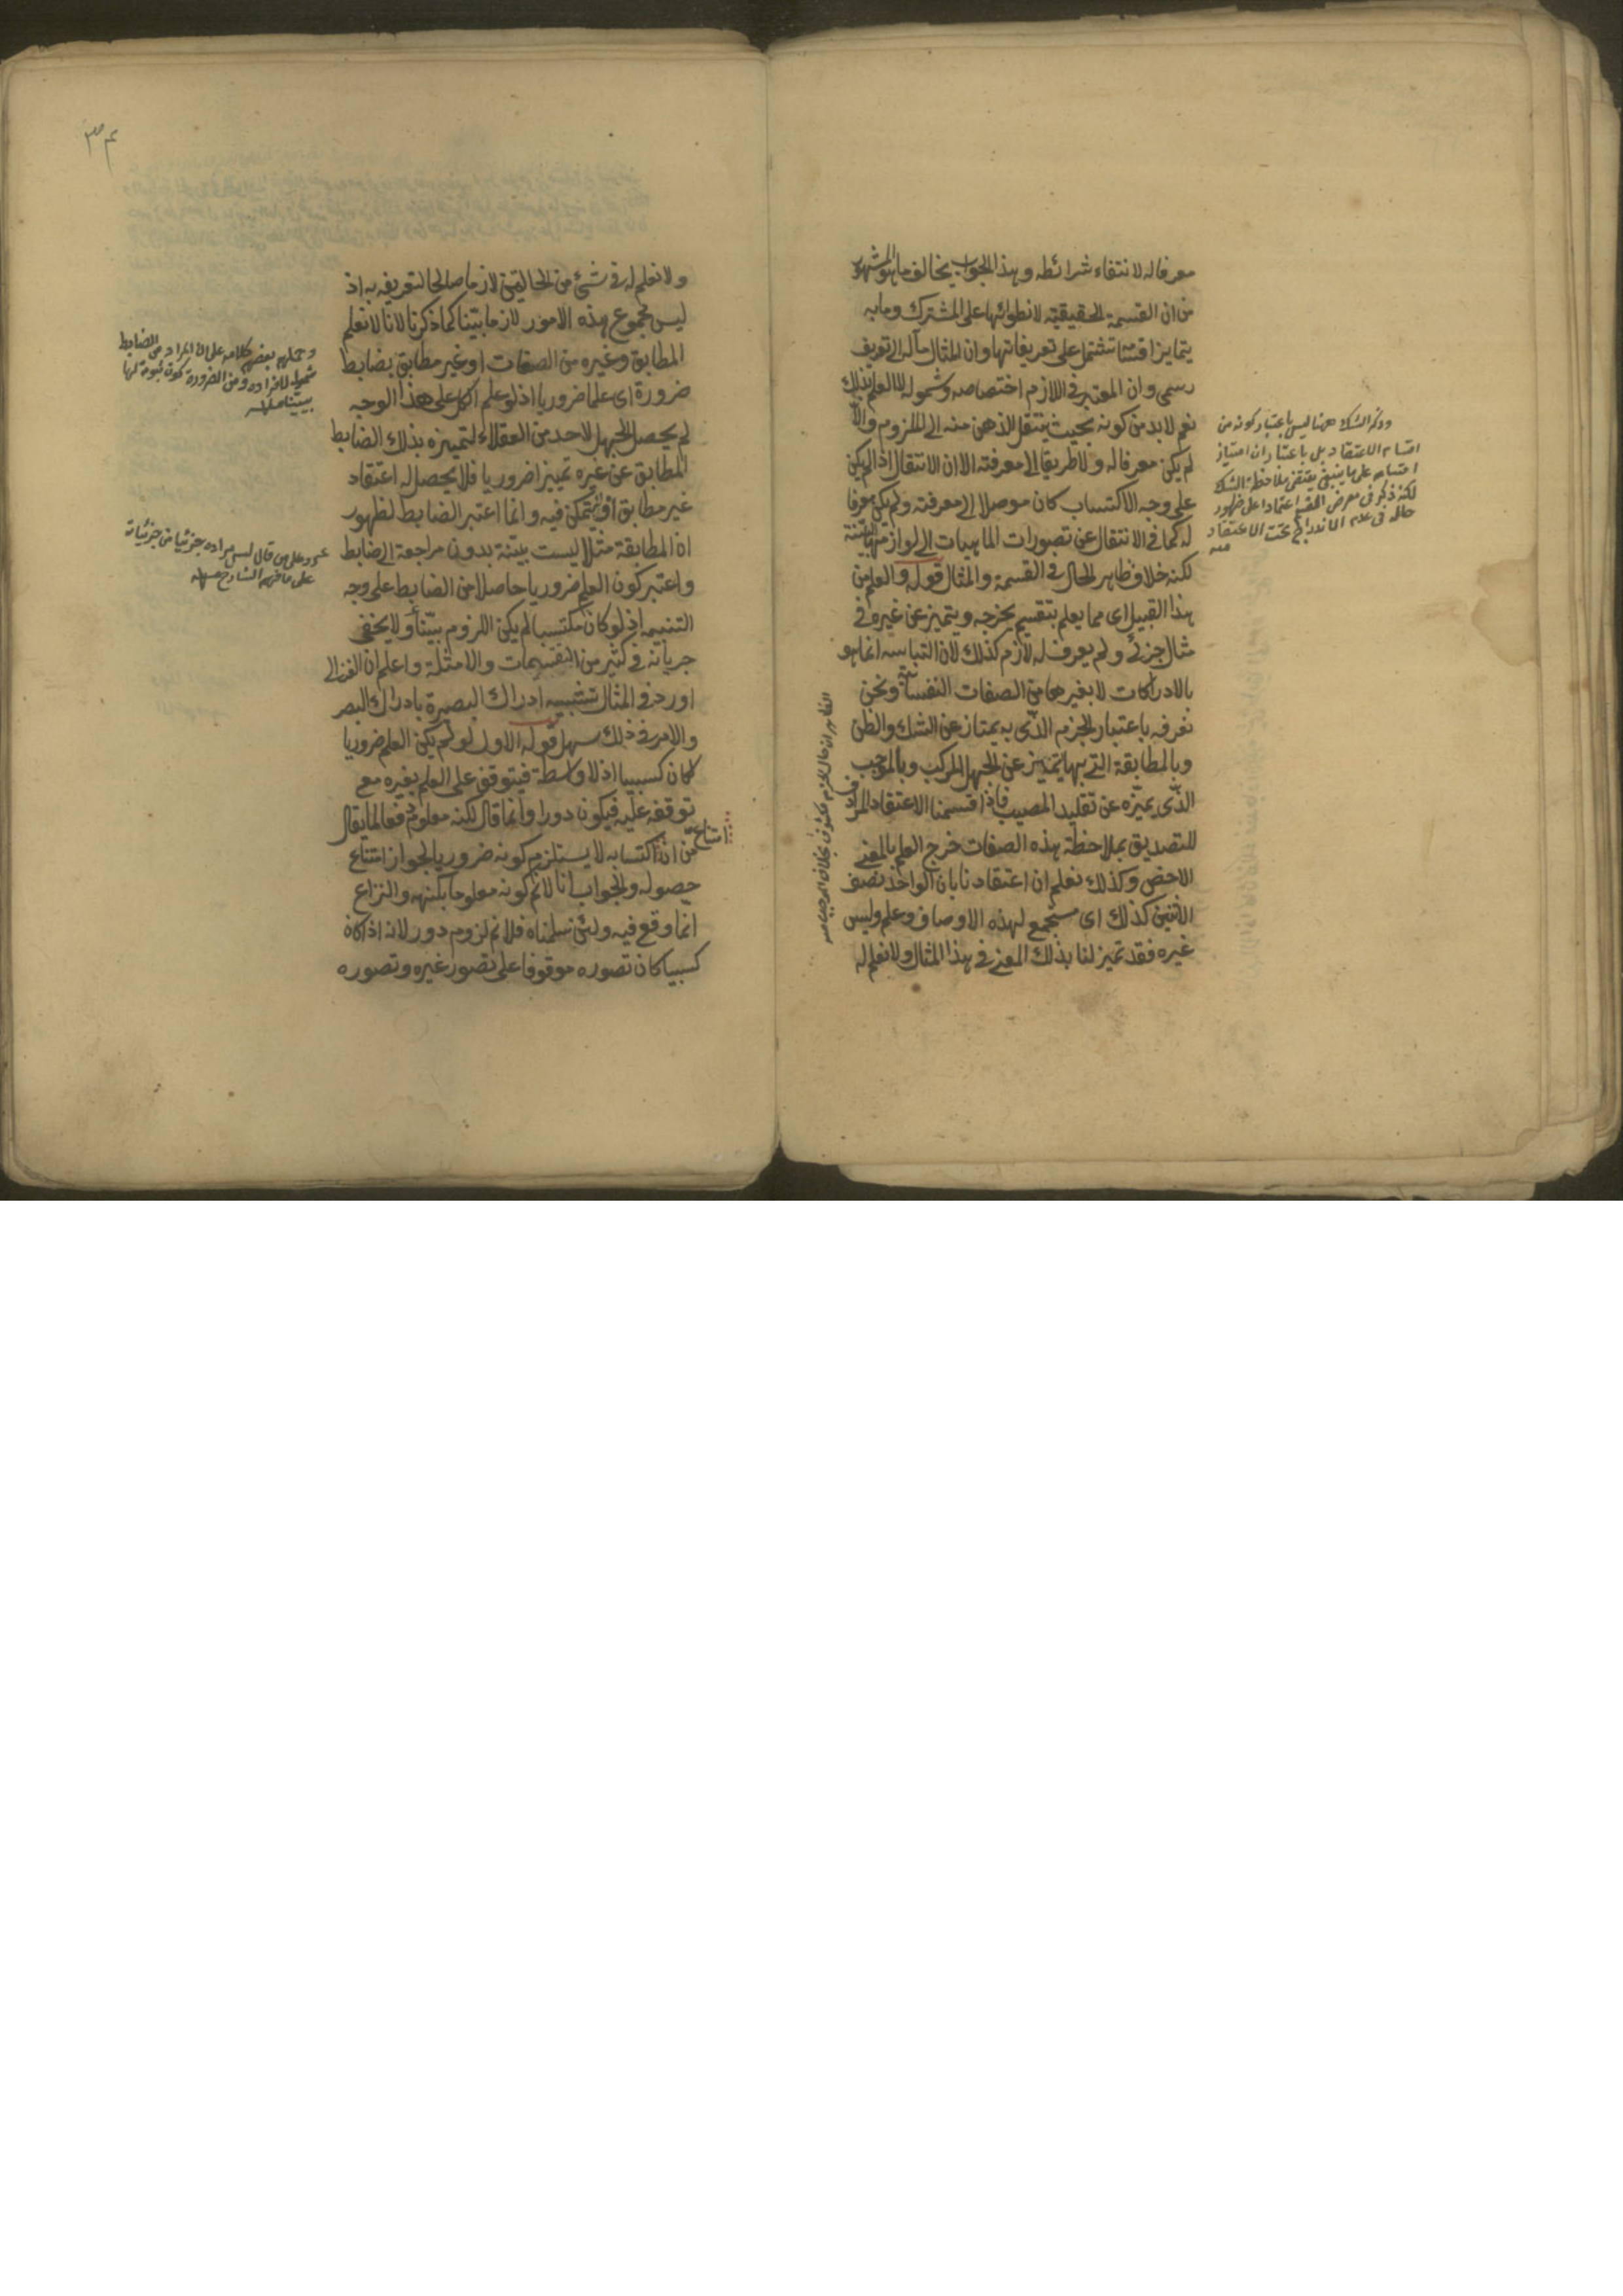 معرفا له لانتفاء شرائطه وهذا الجواب يخالف ما هو المشهور
من ان القسمة الحقيقية لانطوائها على المشترك وما به
يتمايز اقسامها تشتمل على تعريفاتها وان المثال مآله الى تعريف
رسمي وان المعتبر في اللازم اختصاصه وشموله لا العلم بذلك
نعم لا بد من كونه بحيث ينتقل الذهن منه الى الملزوم والا
لم يكن معرفا له ولا طريقا الى معرفته الا ان الانتقال اذا لم يكن
على وجه الاكتساب كان موصلا الى معرفته ولم يكن معرفا
له كما في الانتقال عن تصورات الماهيات الى لوازمها البينة
لكنه خلاف ظاهر الحال في القسمة والمثال قوله والعلم من
هذا القبيل اى مما يعلم بتقسيم يخرجه ويتميز عن غيره في
مثال جزئي ولم يعرف له لازم كذلك لان التباسه انما هو
بالادراكات لا بغيرها من الصفات النفسانية ونحن
نعرفه باعتبار الجزم الذى به يمتاز عن الشك والظن
وبالمطابقة التى بها يتميز عن الجهل المركب وبالموجب
الذى يميزه عن تقليد المصيب فاذا قسمنا الاعتقاد المرادف
للتصديق بملاحظة هذه الصفات خرج العلم بالمعنى
الاخص وكذلك نعلم ان اعتقادنا بان الواحد نصف
الاثنين كذلك اى مستجمع لهذه الاوصاف وعلم وليس
غيره فقد تميز لنا بذلك المعنى في هذا المثال ولا نعلم له
وذكر الشك ههنا ليس باعتبار كونه من
اقسام الاعتقاد بل باعتبار ان امتياز
اقسامه على ما ينبغى يقتضى ملاحظة الشك
لكنه ذكر في معرض القسم اعتمادا على ظهور
حاله في عدم الاندراج تحت الاعتقاد
منه
ولا نعلم له في شئ من الحالتين لازما صالحا لتعريفه به اذ
ليس مجموع هذه الامور لازما بينا كما ذكرنا لانا لا نعلم
المطابق وغيره من الصفات او غير مطابق بضابط
ضرورة اى علما ضروريا اذ لو علم الكل على هذا الوجه
لم يحصل الجهل لاحد من العقلاء لتميزه بذلك الضابط
المطابق عن غيره تمييزا ضروريا فلا يحصل له اعتقاد
غير مطابق او يتمكن فيه وانما اعتبر الضابط لظهور
ان المطابقة مثلا ليست بينة بدون مراجعة الى ضابط
واعتبر كون العلم ضروريا حاصلا من الضابط على وجه
التنبيه اذ لو كان مكتسبا لم يكن اللزوم بينا ولا يخفى
جريانه في كثير من التقسيمات والامثلة واعلم ان الغزالى
اورد في المثال تشبيه ادراك البصيرة بادراك البصر
والامر في ذلك سهل قوله الاول لو لم يكن العلم ضروريا
لكان كسبيا اذ لا واسطة فيتوقف على العلم بغيره مع
توقفه عليه فيكون دورا وانما قال لكنه معلوم دفعا لما يقال
من ان امتناع اكتسابه لا يستلزم كونه ضروريا لجواز امتناع
حصوله والجواب انا لا نم كونه معلوما بكنهه والنزاع
انما وقع فيه ولئن سلمناه فلا نم لزوم دور لانه اذا كان
كسبيا كان تصوره موقوفا على تصور غيره وتصوره